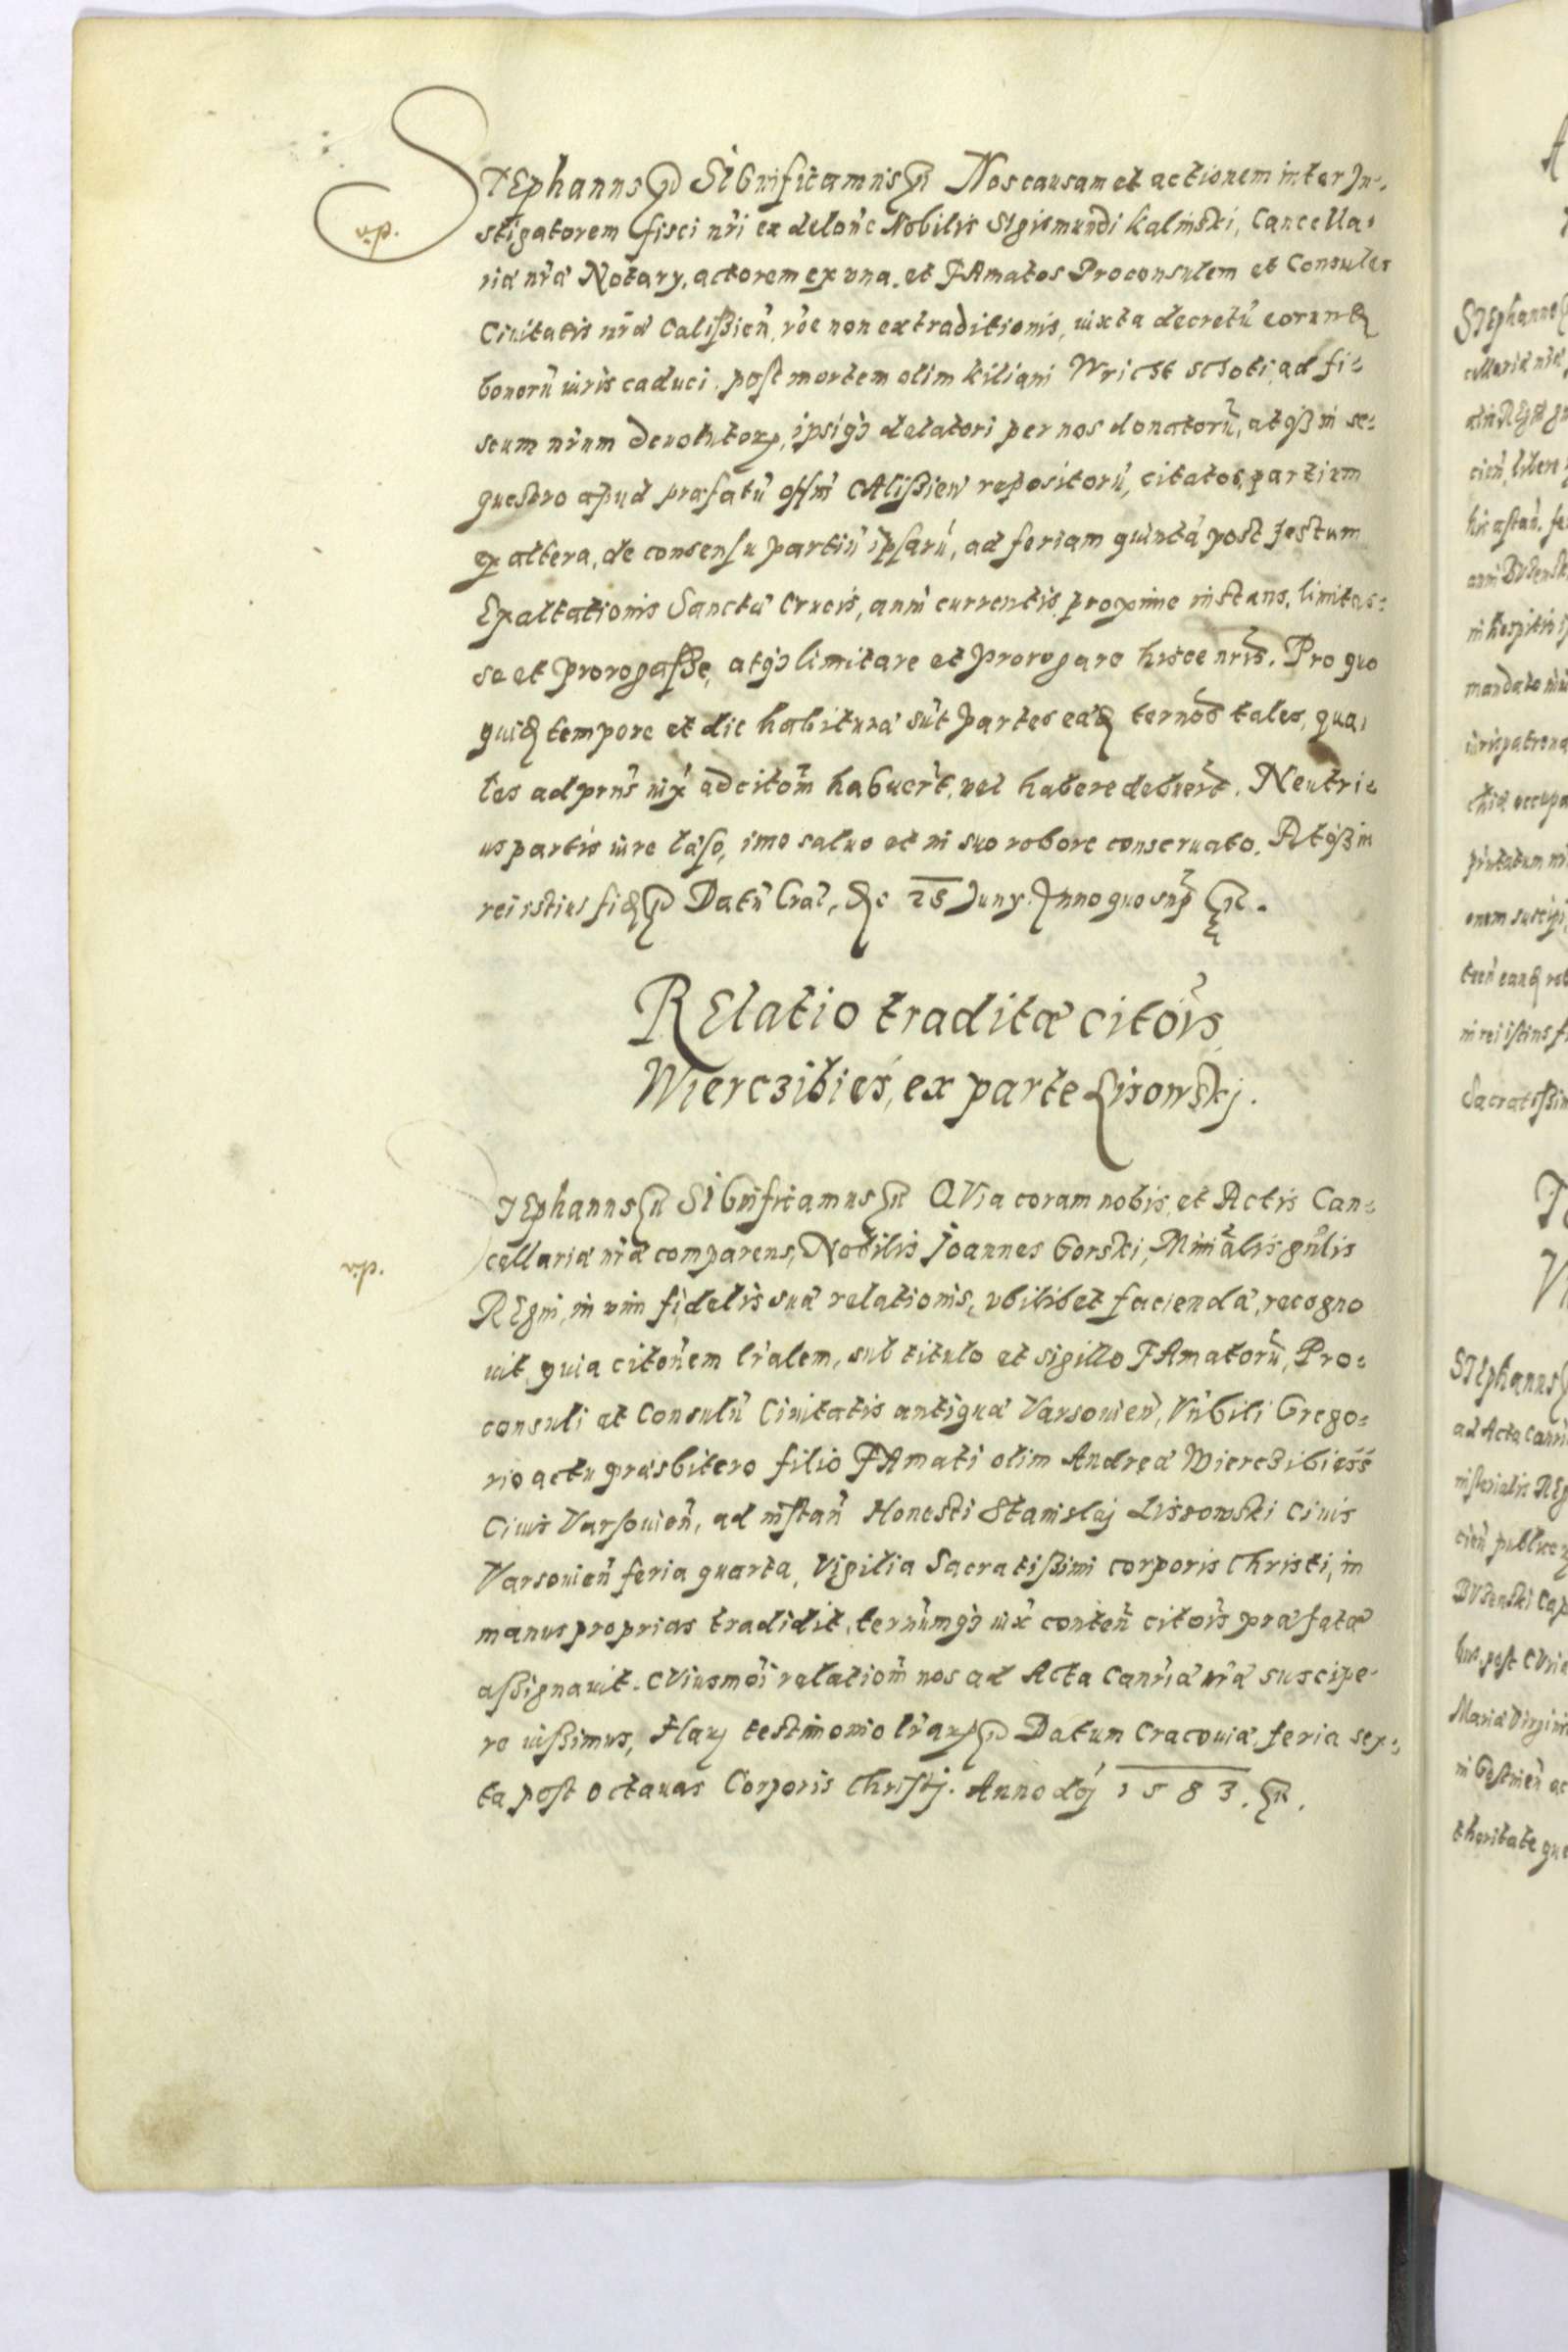 STEphanus SIGnificamus Nos causam et actionem inter In-
stigatorem fisci nri ex delone Nobilis Sigismundi Kalinski, Cancella-
riæ nræ Notary, actorem ex una, et FAmatos Proconsulem et Consules
Ciuitatis nræ Calissien, roe non extraditionis, iuxta decretū eorund
bonorū iuris caduci, post mortem olim Kiliani Wricht schoti, ad fi-
scum nrum deuolutorum, ipsiqz delatori per nos donatorū, atqz in se-
questro apud præfatū offm CAlissien repositorū, citatos partium
ex altera, de consensu partiū ipsarū, ad feriam quintā post festum
Exaltationis Sanctæ Crucis, anni currentis, proxime instans, limitas-
se et prorogasse, atqz limitare et prorogare hisce nris. Pro quo
quid tempore et die habituræ sūt partes eād ternos tales, qua-
les ad prns iux adcitom habuert, vel habere debuert. Neutri-
us partis iure læso, imo saluo et in suo robore conseruato. Atqz in
rei istius fid Datū Cra, d 28 Juny. Anno quo sup
RElatio traditæ citois
Wierczibies, ex parte Lisowskj.
STEphanus SIGnificamus QVia coram nobis, et Actis Can-
cellariæ nræ comparens, Nobilis Joannes Gorski, Minialis gnlis
REgni, in vim fidelis suæ relationis, vbilibet faciendæ, recogno
uit, quia citonem lralem, sub titulo et sigillo FAmatorū, Pro-
consuli et Consulū Ciuitatis antiquæ Varsouien, Vnbili Grego-
rio actu præsbitero filio FAmati olim Andreæ Wierczibiess
Ciuis Varsouien, ad instan Honesti Stanislaj Lissowski Ciuis
Varsouien feria quarta, Vigilia Sacratissimi corporis Christi, in
manus proprias tradidit, ternumqz iux conten citois præfatæ
assignauit. CViusmoi relatiom nos ad Acta Canriæ nræ suscipe-
re iussimus, Harum testimonio lrarum Datum Cracouiæ, feria sex-
ta post octauas Corporis Christj. Anno dnj 1583.